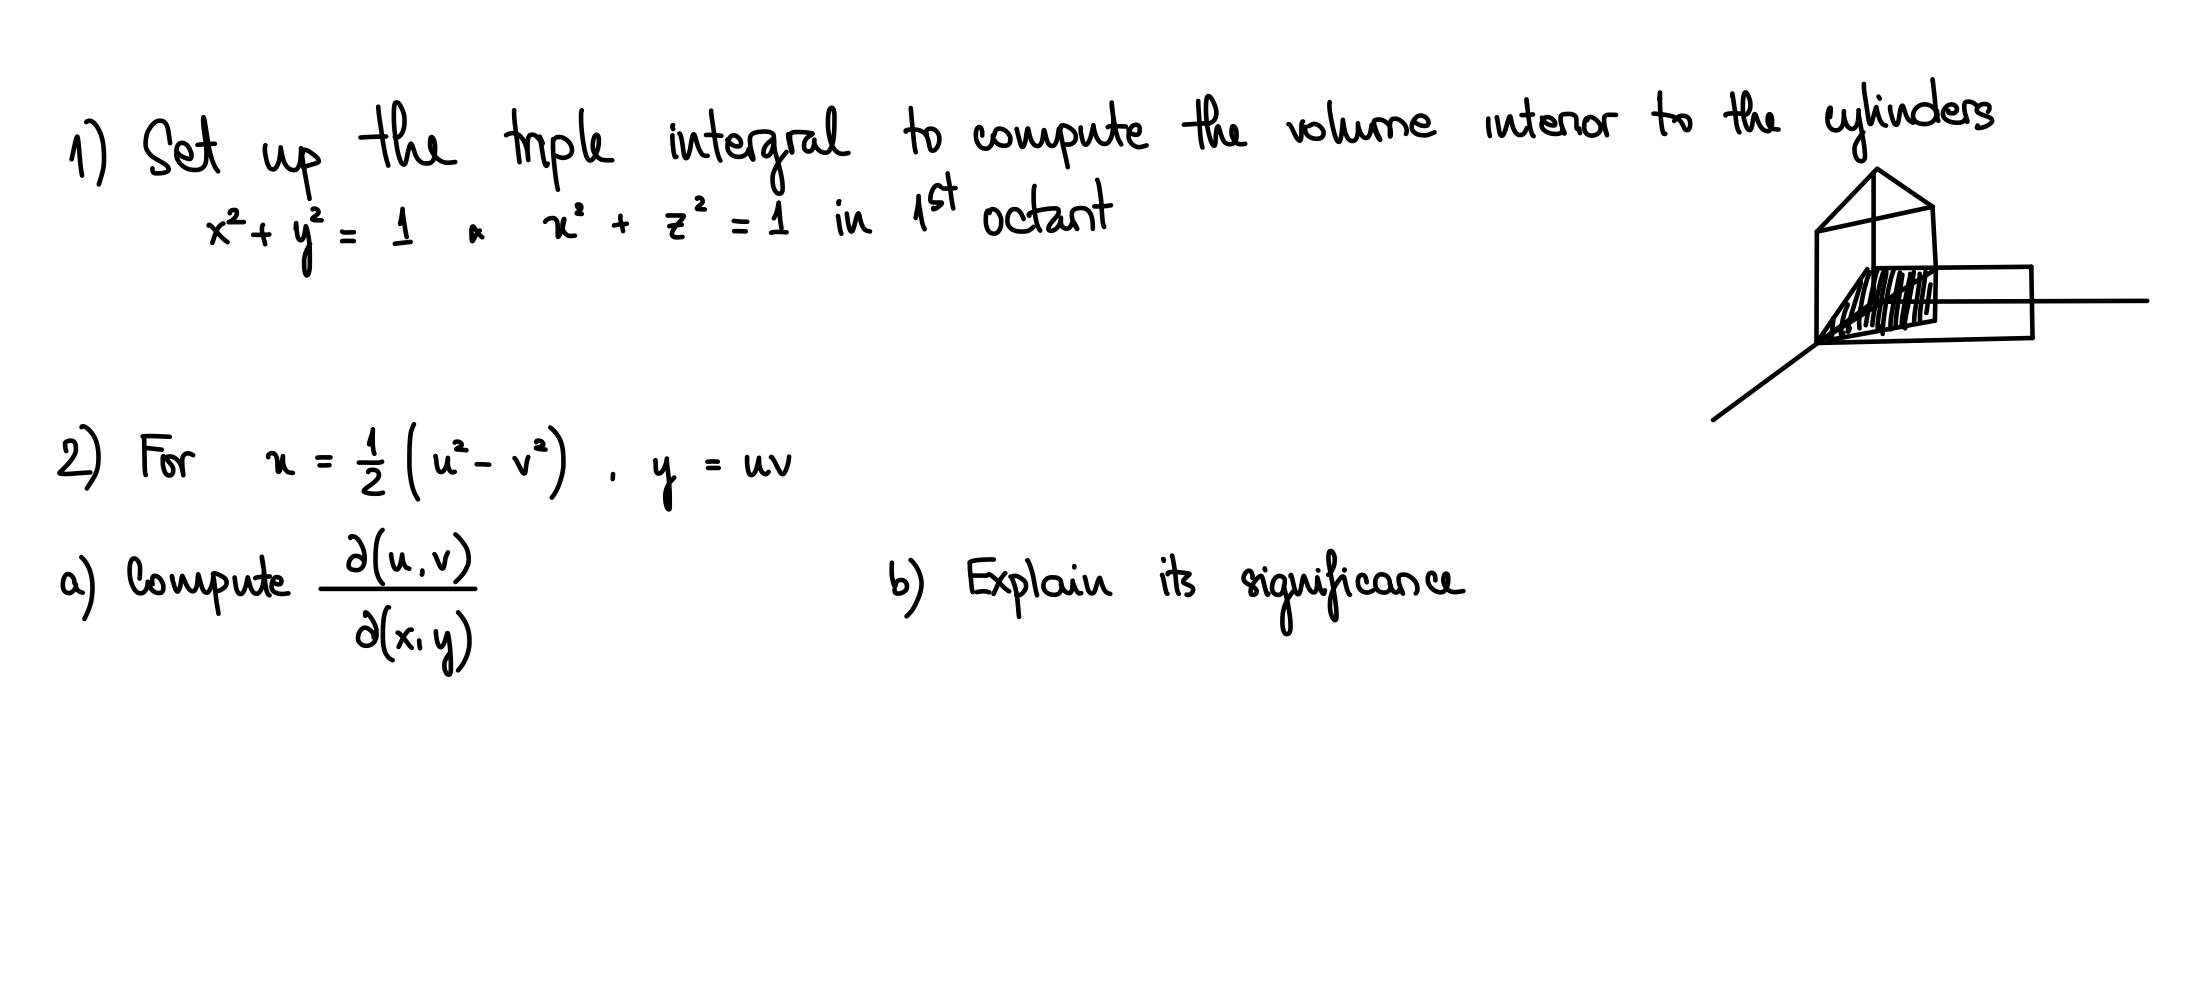 1) Set up the triple integral to compute the volume interior to the cylinders
x² + y² = 1 & x² + z² = 1 in 1st octant
2) For x = 1/2 (u² - v²) , y = uv
a) Compute ∂(u,v)/∂(x,y) b) Explain its significance